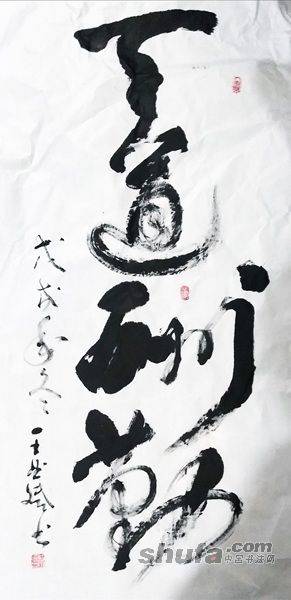 天道酬勤
戊戌冬 王书
shufa.com
中国书法网